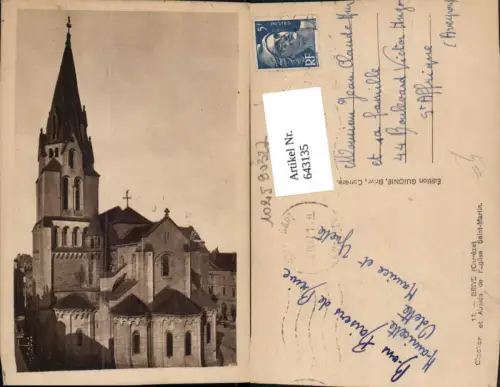 5F
POSTES
RF
Artikel Nr.
643135
Monsieur Jean Claude
et sa famille
44 Boulevard Victor Hugo
St Affrique
(Aveyron)
Édition GUIONIE, Brive, Corrèze.
17. - BRIVE (Corrèze)
Clocher et Absides de l'Eglise Saint-Martin.
Bons Baisers de Brive
Maurice et Yvette
Odette